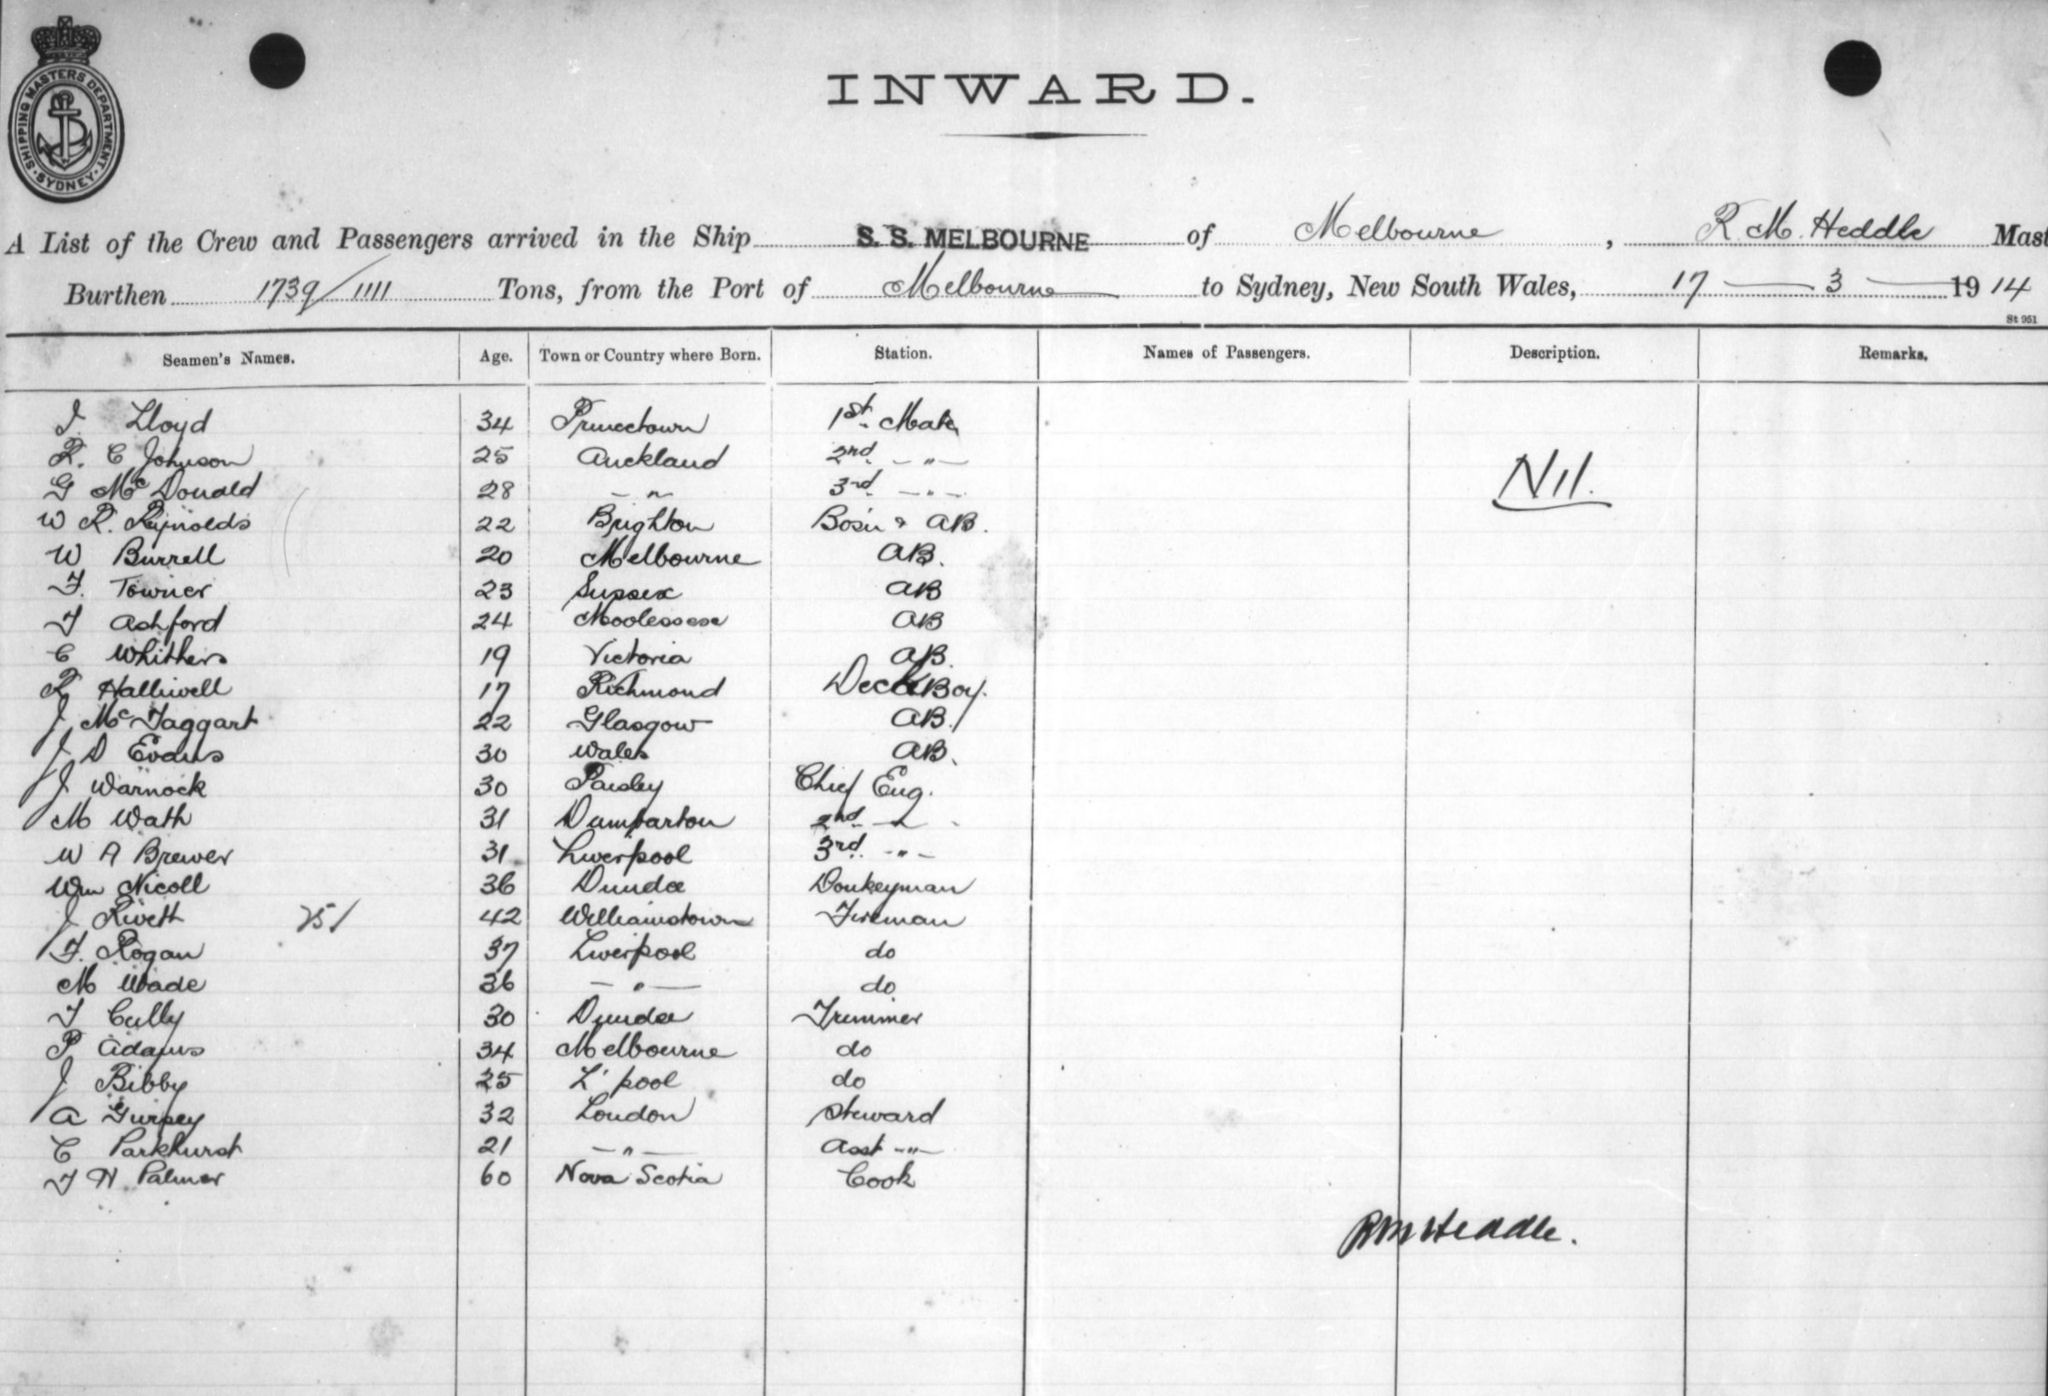 SHIPPING MASTERS DEPARTMENT · SYDNEY ·
INWARD.
A List of the Crew and Passengers arrived in the Ship S. S. MELBOURNE of Melbourne, R. M. Heddle Mast
Burthen 1739/1111 Tons, from the Port of Melbourne to Sydney, New South Wales, 17 — 3 — 1914
St 951
Seamen's Names. Age. Town or Country where Born. Station. Names of Passengers. Description. Remarks.
Lloyd 34 Princetown 1st Mate
R. C Johnson 25 Auckland 2nd — " —
Nil.
G McDonald 28 — " — 3rd — " —
W R. Reynolds 22 Brighton Bos'n & AB.
W Burrell 20 Melbourne AB.
F. Towner 23 Sussex AB
Ashford 24 AB
C Whithers 19 Victoria AB.
R Halliwell 17 Richmond Deck Boy.
J McTaggart 22 Glasgow AB.
J D Evans 30 Wales AB.
J Warnock 30 Paisley Chief Eng.
M Wath 31 Dumbarton 2nd — " —
W A Brewer 31 Liverpool 3rd — " —
Wm Nicoll 36 Dundee Donkeyman
J Rivett 251 42 Williamstown Fireman
F. Rogan 37 Liverpool do
M Wade 36 — " — do
T Cully 30 Dundee Trimmer
P Adams 34 Melbourne do
J Bibby 25 L'pool do
A Gurpey 32 London Steward
C Parkhurst 21 — " — Asst — " —
T H Palmer 60 Nova Scotia Cook
RM Heddle.